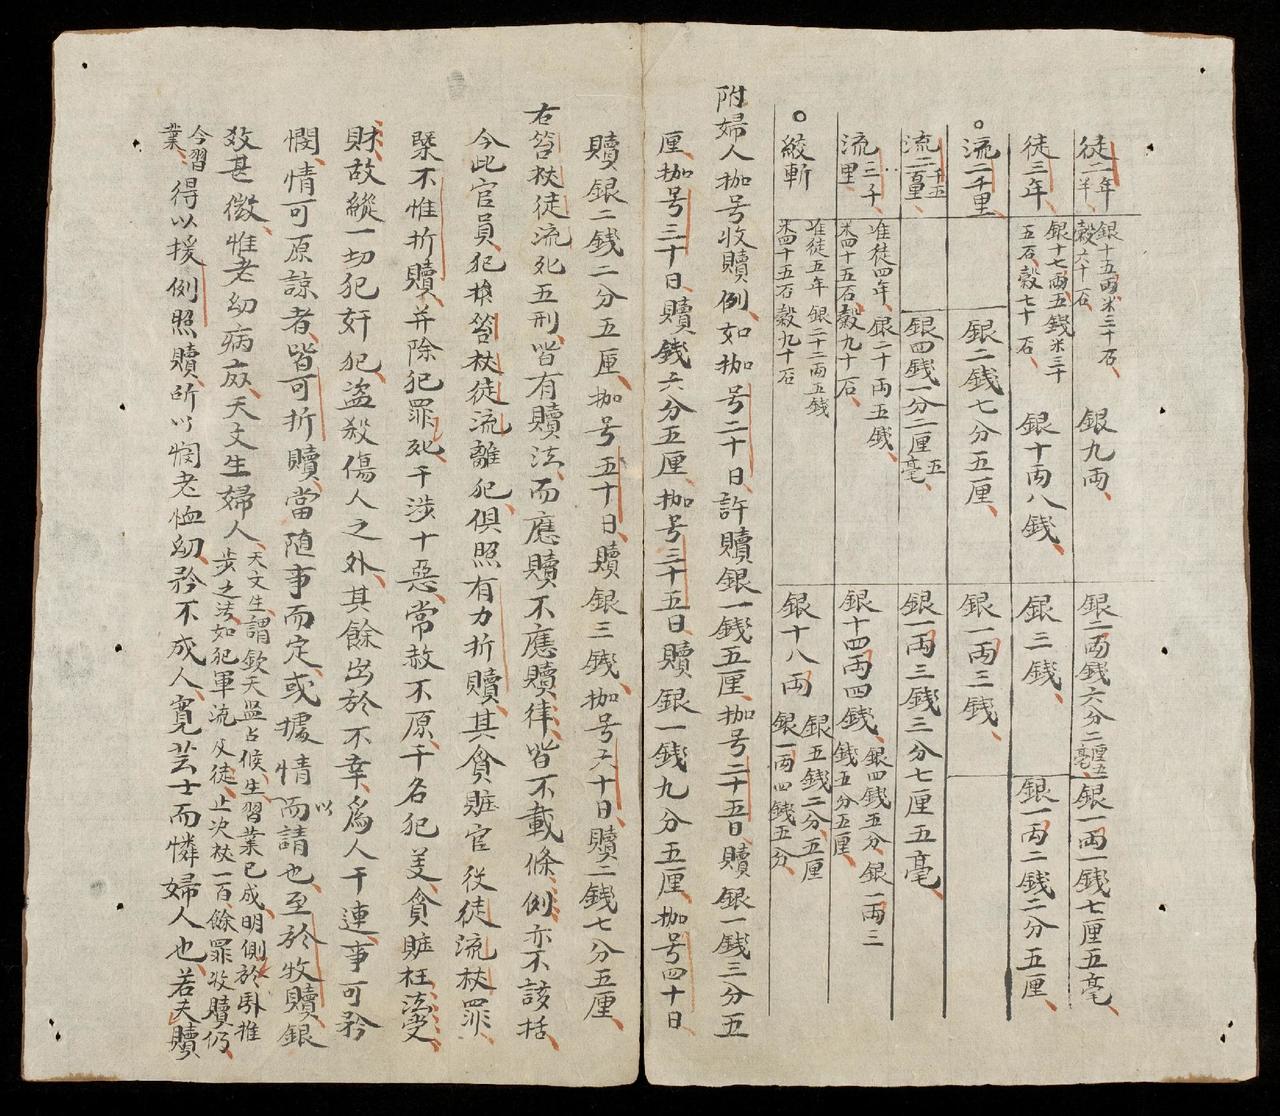 徒二年半 銀十五兩米三十石穀六十石 銀九兩 銀二兩錢六分二厘五毫 銀一兩一錢七厘五毫
徒三年 銀十七兩五錢米三十五石穀七十石 銀十兩八錢 銀二錢 銀一兩二錢二分五厘
流二千里 銀二錢七分五厘 銀一兩三錢
流二千五百里 銀四錢一分二厘五毫 銀一兩三錢三分七厘五毫
流三千里 准徒四年銀二十兩五錢米四十五石穀九十石 銀十四兩四錢 銀四錢五分銀一兩三錢五分五厘
絞斬 准徒五年銀二十二兩五錢米四十五石穀九十石 銀十八兩 銀五錢二分五厘銀一兩四錢五分
附婦人枷号收贖例如枷号二十日許贖銀一錢五厘枷号二十五日贖銀一錢三分五
厘枷号三十日贖錢六分五厘枷号三十五日贖銀一錢九分五厘枷号四十日
贖銀二錢二分五厘枷号五十日贖銀三錢枷号六十日贖二錢七分五厘
右笞杖徒流死五刑皆有贖法而應贖不應贖律皆不載條例亦不該括
今此官員犯笞杖徒流離犯俱照有力折贖其貪賍官役徒流杖罪
槩不惟折贖并除犯罪死干涉十惡常赦不原干名犯義貪賍枉法受
財故縱一切犯奸犯盜殺傷人之外其餘出於不幸爲人干連事可矜
憫情可原諒者皆可折贖當随事而定或據情而以請也至於收贖銀
数甚微惟老幼病廢天文生婦人天文生謂欽天监占候生習業已成明側於卦推步之法如犯軍流及徒止次杖一百餘罪收贖仍
今習業得以援例照贖所以憫老恤幼矜不成人寬芸士而憐婦人也若夫贖